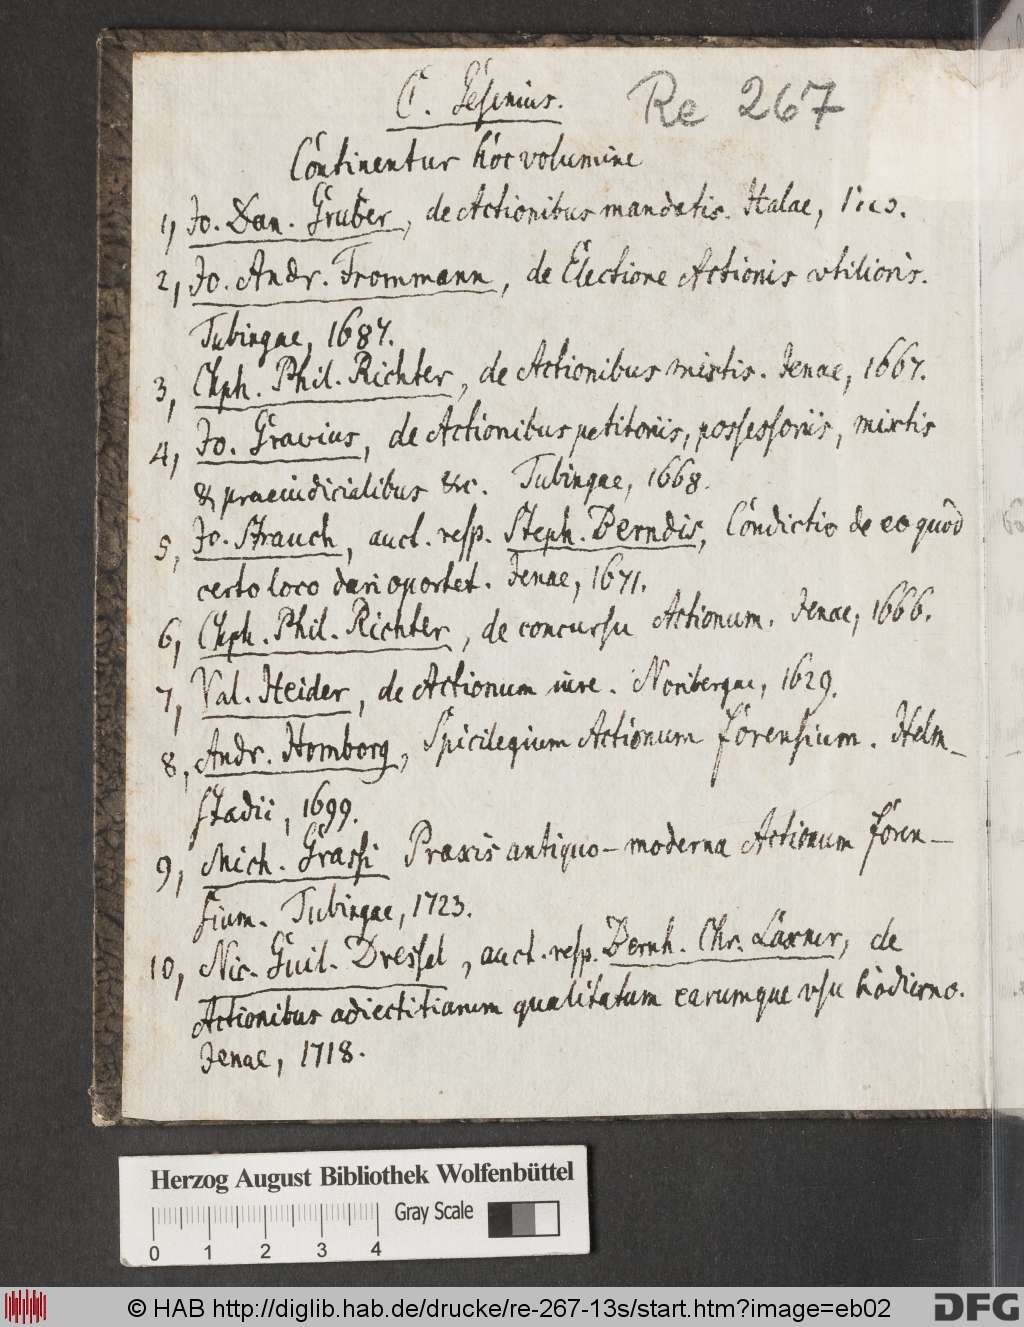 C. Gesenius.
Re 267
Continentur hoc volumine
1, Jo. Dan. Gruber, de Actionibus mandatis. Halae,
2, Jo. Andr. Frommann, de Electione Actionis vtilioris.
Tubingae, 1687.
3, Chph. Phil. Richter, de Actionibus mixtis. Jenae, 1667.
4, Jo. Gravius, de Actionibus petitoriis, possessoriis, mixtis
& praeiudicialibus &c. Tubingae, 1668.
5, Jo. Strauch, auct. resp. Steph. Berndis, Condictio de eo quod
certo loco dari oportet. Jenae, 1671.
6, Chph. Phil. Richter, de concursu Actionum. Jenae, 1666.
7, Val. Heider, de Actionum iure. Noribergae, 1629.
8, Andr. Homborg, Spicilegium Actionum forensium. Helm-
stadii, 1699.
9, Mich. Grassi Praxis antiquo-moderna Actionum foren-
sium. Tubingae, 1723.
10, Nic. Guil. Dressel, auct. resp. Bernh. Chr. Laxner, de
Actionibus adiectitiarum qualitatum earumque vsu hodierno.
Jenae, 1718.
Herzog August Bibliothek Wolfenbüttel
Gray Scale
0 1 2 3 4
© HAB http://diglib.hab.de/drucke/re-267-13s/start.htm?image=eb02
DFG